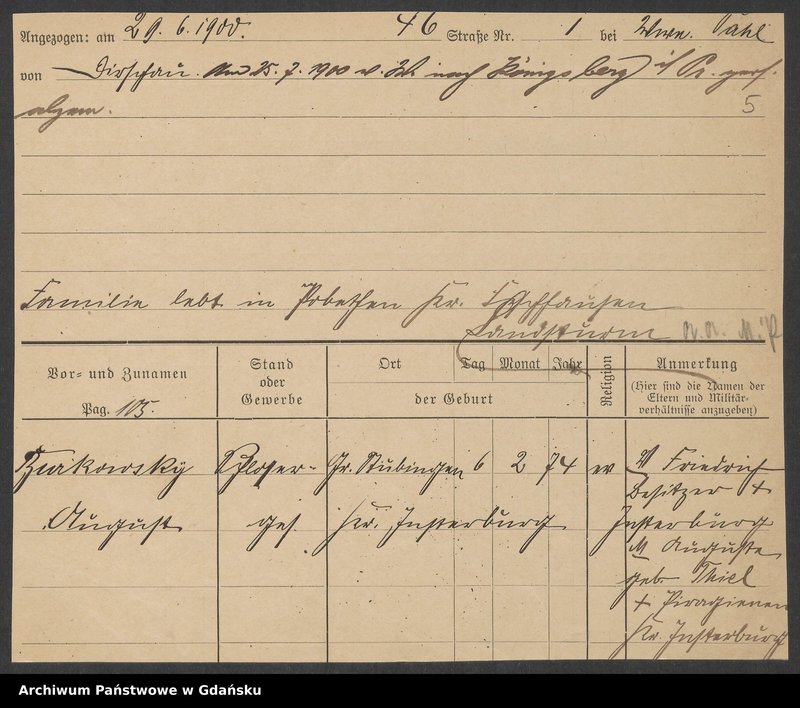 Angezogen: am 29.6.1900. 46 Straße Nr. 1 bei Wwe. Pahl
von Dirschau. Am 25.7.1900 v. W. nach Königsberg i/Pr. pers.
abgem.
5
Familie lebt in Pobethen Kr. Fischhausen
Landsturm
Vor- und Zunamen
Pag. 105.
Stand
oder
Gewerbe
Ort Tag Monat Jahr
der Geburt
Religion
Anmerkung
(Hier sind die Namen der
Eltern und Militär-
verhältnisse anzugeben)
August
Schlosser-
ges.
Gr. Stübingen 6 2 74
Kr. Insterburg
ev
V Friedrich
Besitzer +
Insterburg
M Auguste
geb. Thiel
+ Piragienen
Kr. Insterburg
Archiwum Państwowe w Gdańsku